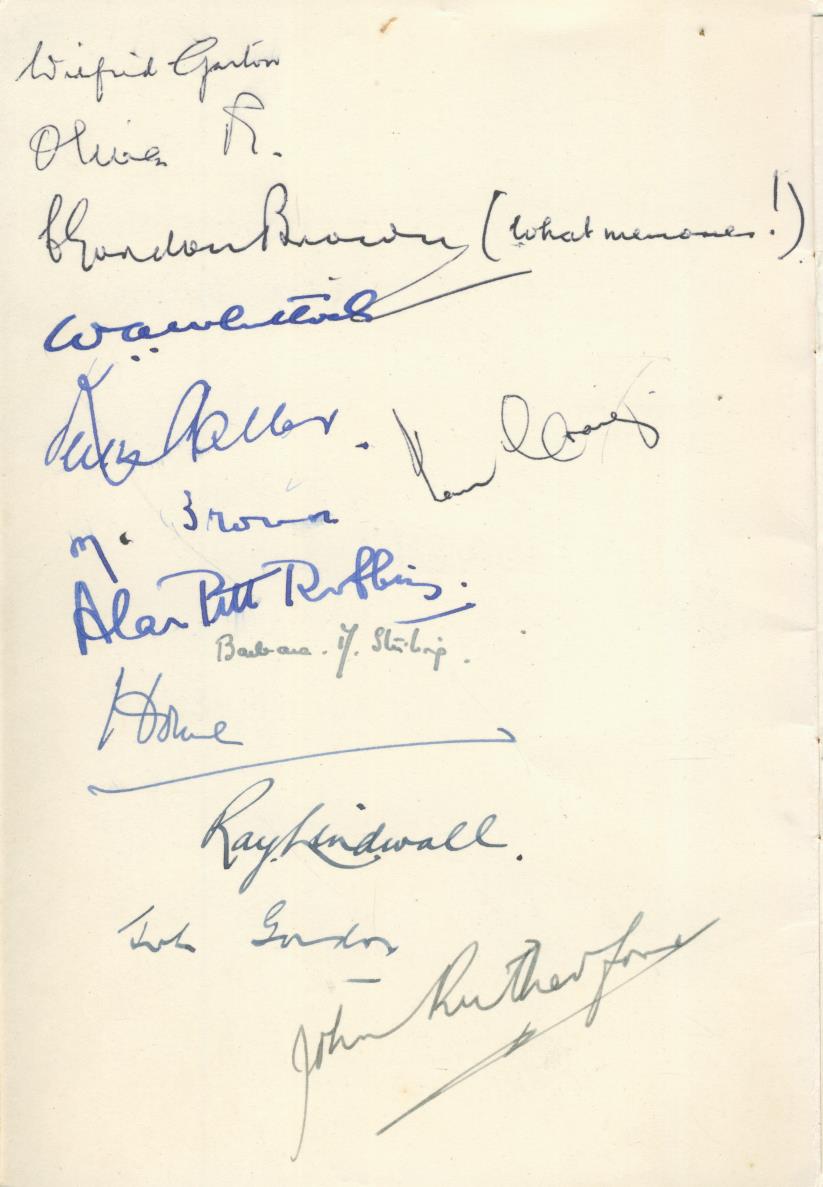 Wilfrid Garton
Oliver R.
Gordon Brown (What memories!)
M. Brown
Alan Pitt Robbins.
Barbara. Y. Stirling.
Home
Ray Lindwall.
John Gordon
John Rutherford